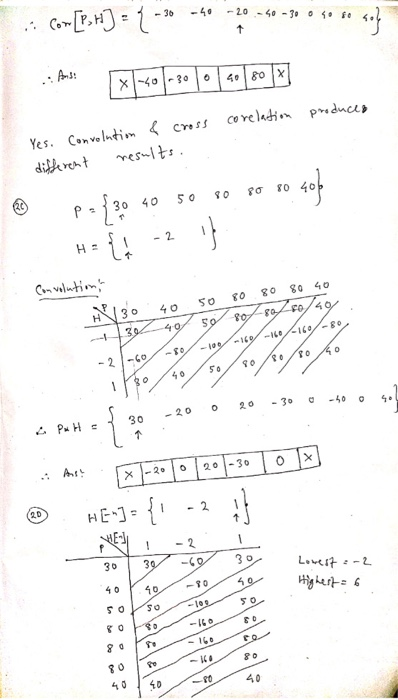 ∴ Corr[P,H] = { -30 -40 -20 -40 -30 0 40 80 40}
↑
∴ Ans: X -40 -30 0 40 80 X
Yes. Convolution & cross corelation produces
different results.
2C P = {30 40 50 80 80 80 40}
↑
H = {1 -2 1}
↑
Convolution:-
H P 30 40 50 80 80 80 40
1 30 40 50 80 80 80 40
-2 -60 -80 -100 -160 -160 -160 -80
1 30 40 50 80 80 80 40
∴ P*H = { 30 -20 0 20 -30 0 -40 0 40}
↑
∴ Ans: X -20 0 20 -30 0 X
2D H[-n] = {1 -2 1}
↑
P H[-] 1 -2 1
30 30 -60 30
40 40 -80 40
50 50 -100 50
80 80 -160 80
80 80 -160 80
80 80 -160 80
40 40 -80 40
Lowest = -2
Highest = 6